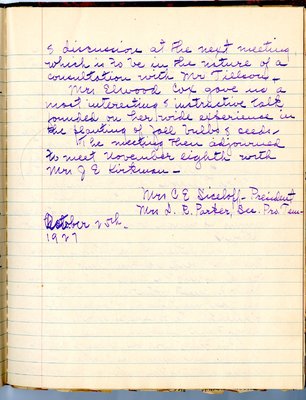 & discussion at the next meeting
which is to be in the nature of a
consultation with Mr Tillson.
Mrs Elwood Cox gave us a
most interesting & instructive talk
founded on her wide experience in
the planting of fall bulbs & seeds.
The meeting then adjourned
to meet November eighth with
Mrs J E Kirkman.
Mrs C E Siceloff. President
Mrs D. R. Parker, Sec. Pro Tem.
October 25th.
1927